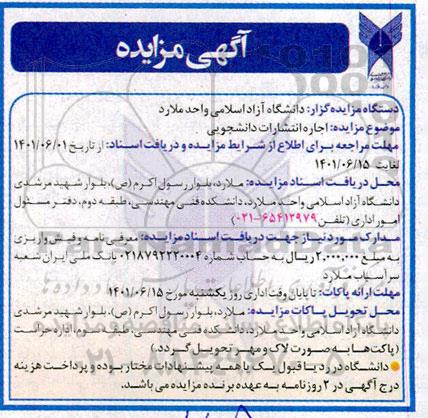 آگهی مزایده
دستگاه مزایده گزار: دانشگاه آزاد اسلامی واحد ملارد
موضوع مزایده: اجاره انتشارات دانشجویی
مهلت مراجعه برای اطلاع از شرایط مزایده و دریافت اسناد: از تاریخ ۱۴۰۱/۰۶/۰۱
لغایت ۱۴۰۱/۰۶/۱۵
محل دریافت اسناد مزایده: ملارد، بلوار رسول اکرم (ص)، بلوار شهید مرشدی
دانشگاه آزاد اسلامی واحد ملارد، دانشکده فنی مهندسی، طبقه دوم، دفتر مسئول
امور اداری (تلفن ۶۵۴۱۲۹۷۹-۰۲۱)
مدارک مورد نیاز جهت دریافت اسناد مزایده: معرفی نامه و فیش واریزی
به مبلغ ۲،۰۰۰،۰۰۰ ریال به حساب شماره ۰۲۱۸۷۹۲۲۲۰۰۰۴ بانک ملی ایران شعبه
سرآسیاب ملارد
مهلت ارائه پاکات: تا پایان وقت اداری روز یکشنبه مورخ ۱۴۰۱/۰۶/۱۵
محل تحویل پاکات مزایده: ملارد، بلوار رسول اکرم (ص)، بلوار شهید مرشدی
دانشگاه آزاد اسلامی واحد ملارد، دانشکده فنی مهندسی، طبقه سوم، اداره حراست
(پاکت ها به صورت لاک و مهر تحویل گردد.)
دانشگاه در رد یا قبول یک یا همه پیشنهادات مختار بوده و پرداخت هزینه
درج آگهی در ۲ روزنامه به عهده برنده مزایده می باشد.